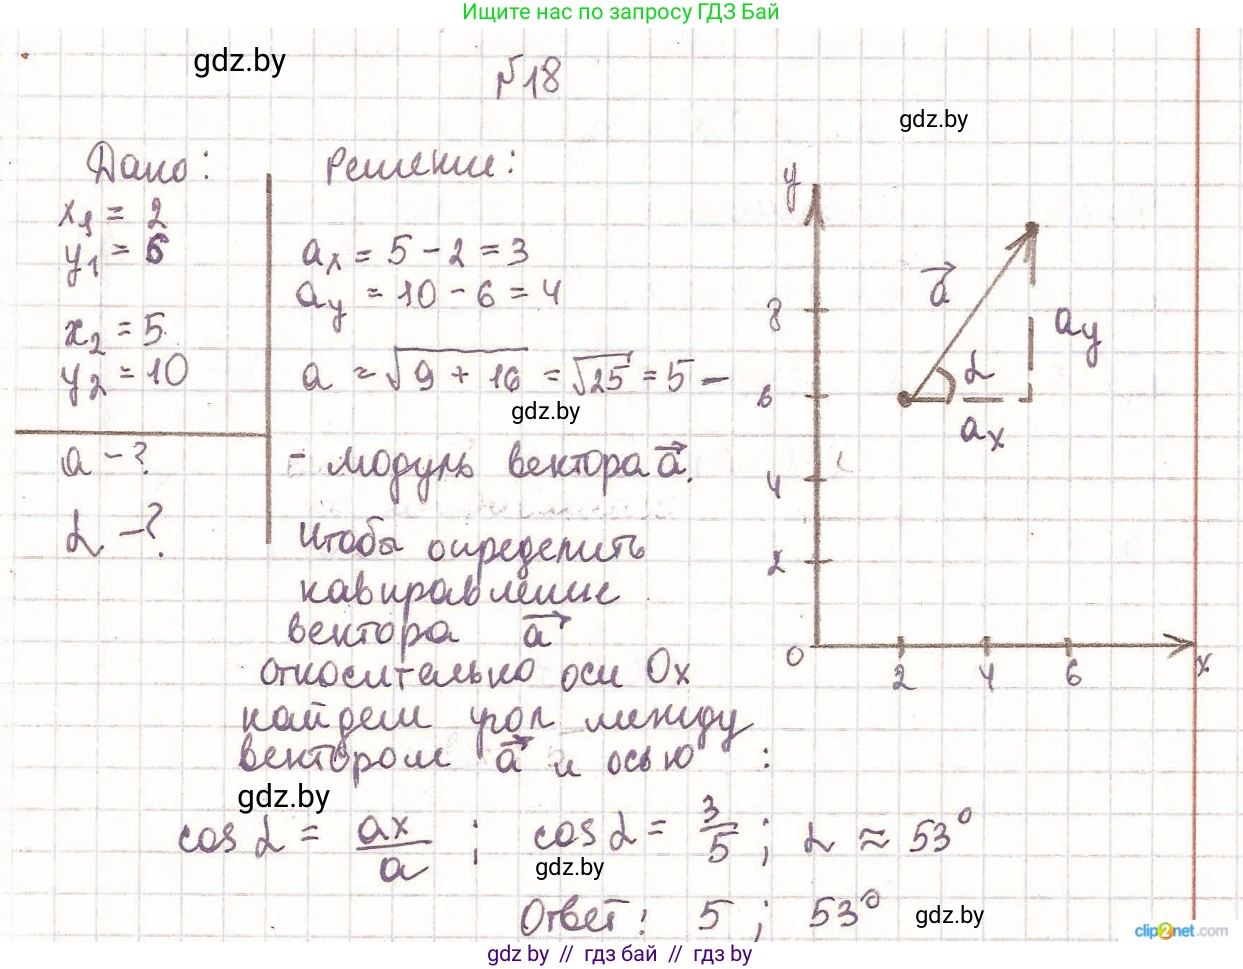 Ищите нас по запросу ГДЗ Бай
gdz.by
№18
gdz.by
Дано:
x₁ = 2
y₁ = 6
x₂ = 5
y₂ = 10
a - ?
α - ?
Решение:
aₓ = 5 - 2 = 3
a_y = 10 - 6 = 4
a = √(9 + 16) = √25 = 5 -
gdz.by
- модуль вектора a⃗.
Чтобы определить
навправление
вектора a⃗
относительно оси Ox
найдем угол между
вектором a⃗ и осью :
gdz.by
cos α = aₓ/a ; cos α = 3/5 ; α ≈ 53°
gdz.by
Ответ: 5 ; 53°
gdz.by
y
8
6
4
2
0
2 4 6 x
a⃗
α
a_y
aₓ
clip2net.com
gdz by // гдз бай // гдз by